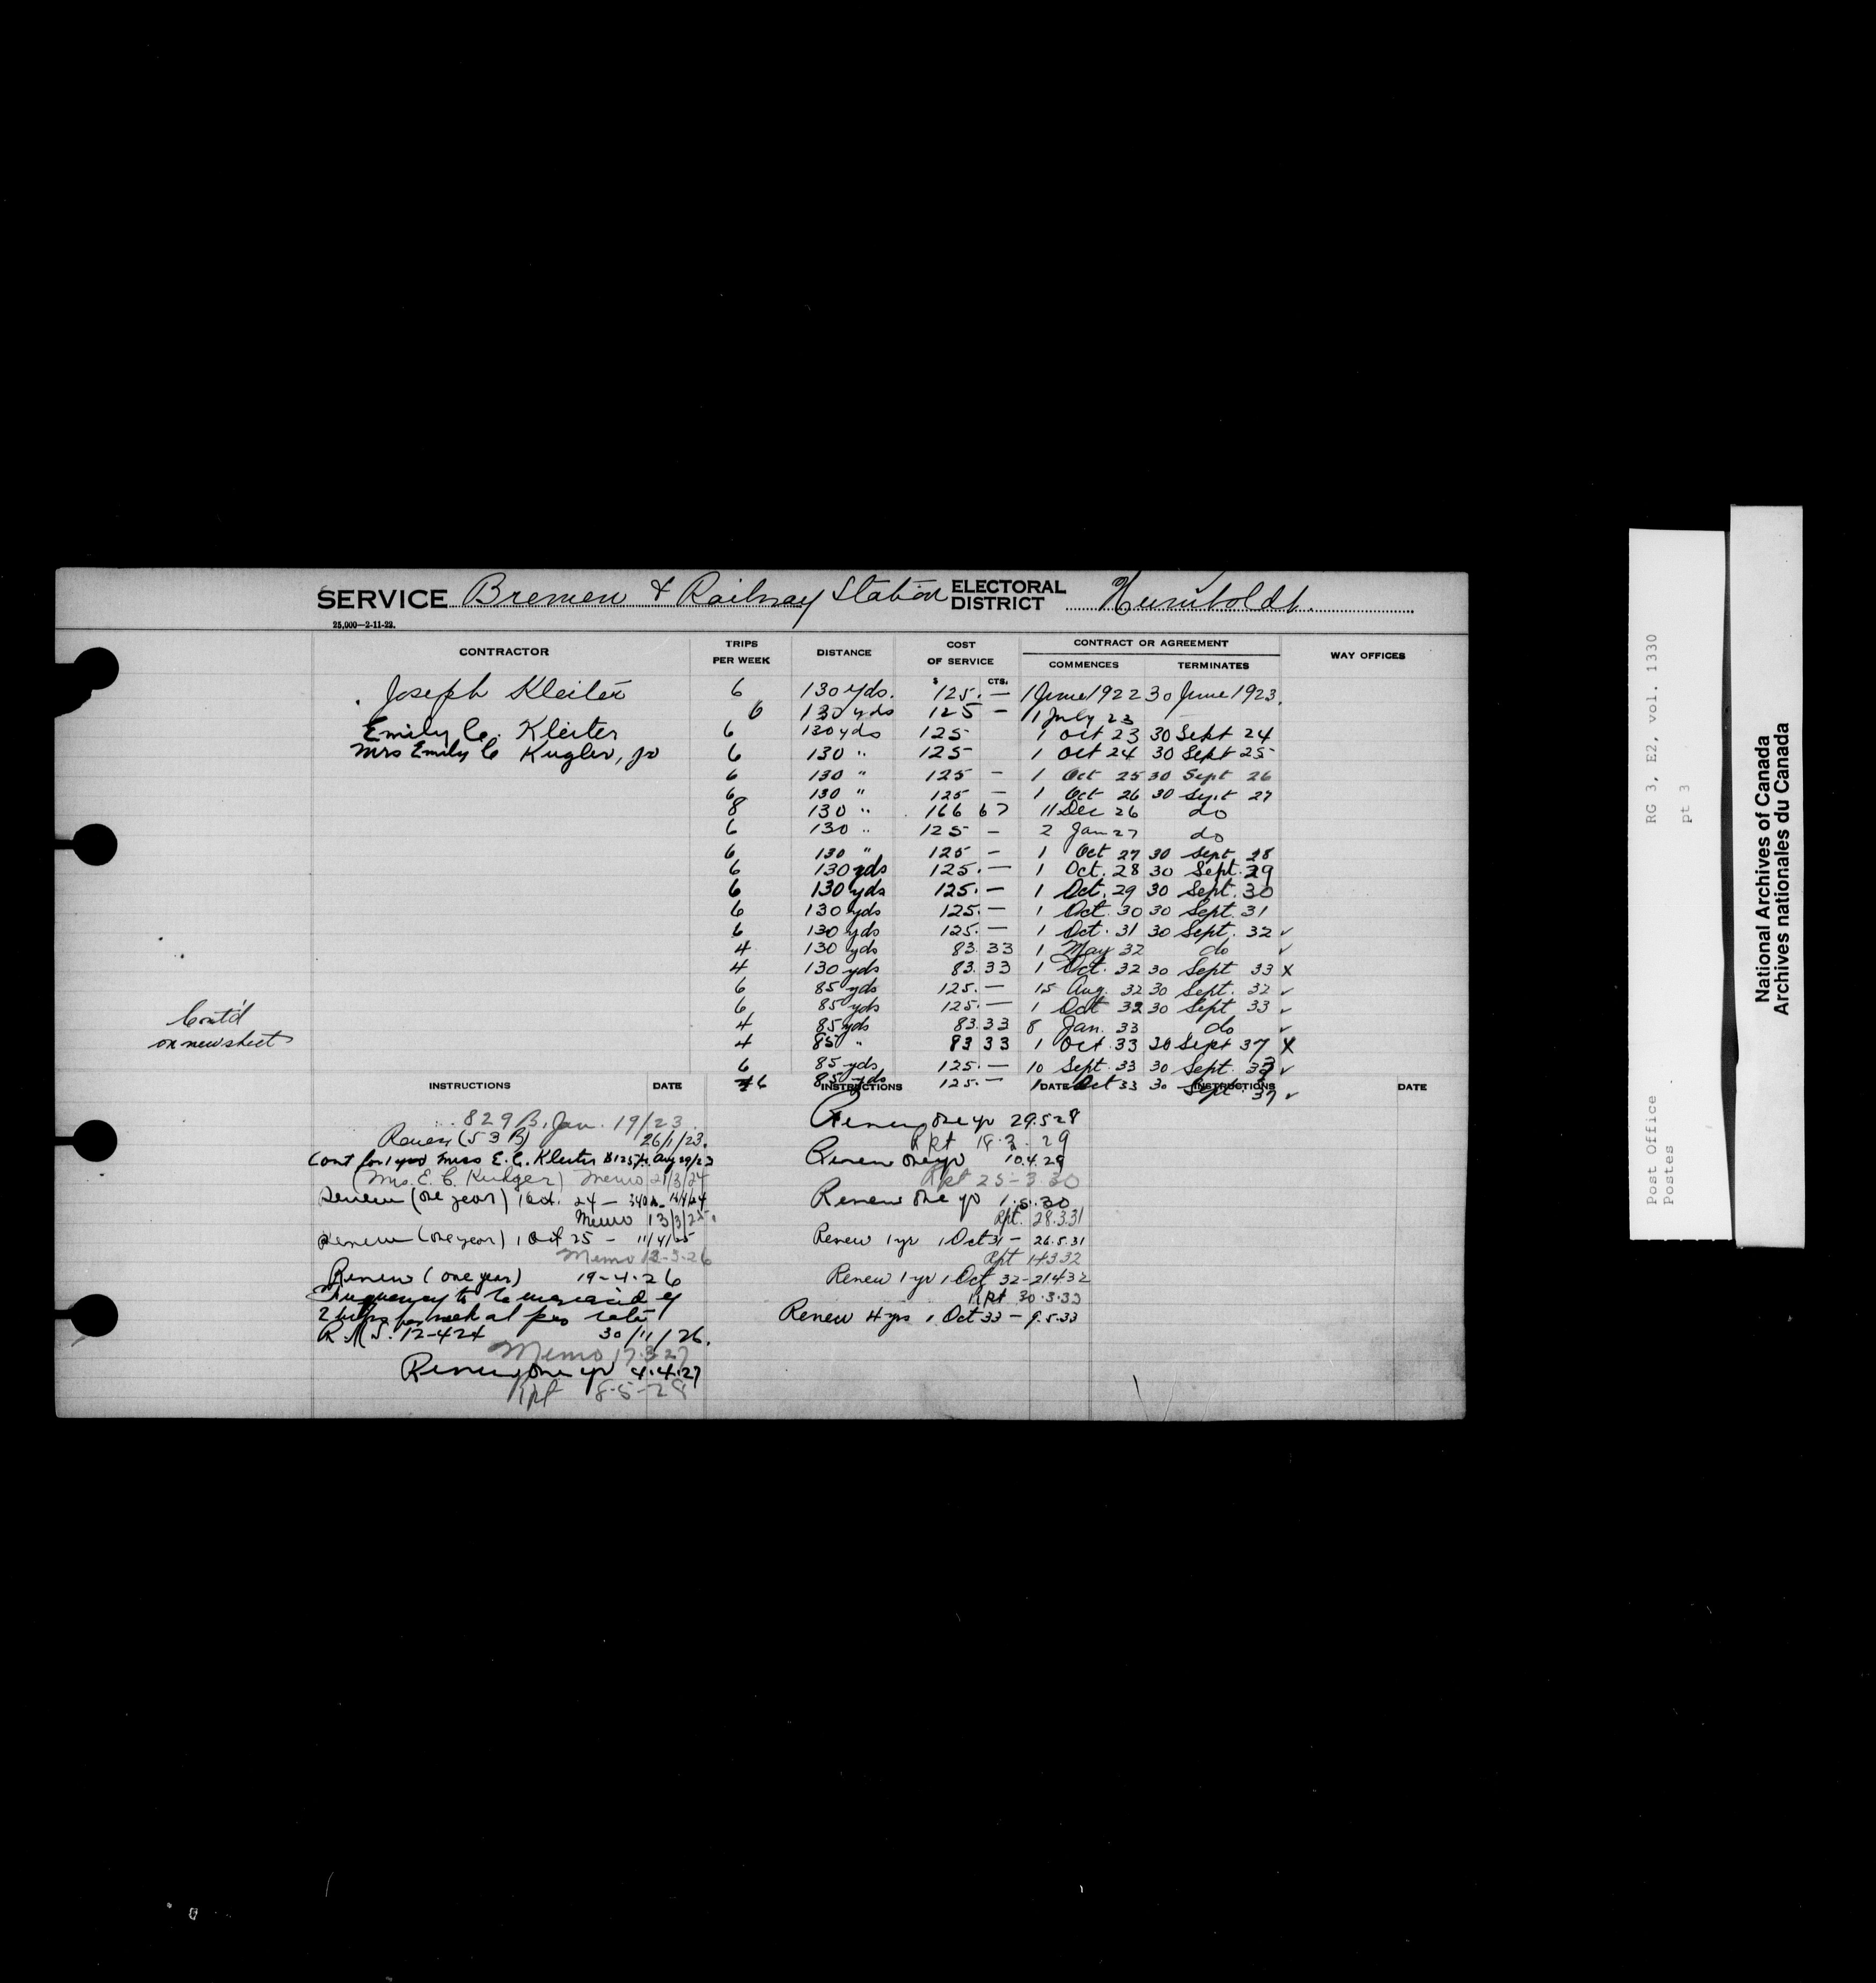 SERVICE Bremen & Railway Station ELECTORAL DISTRICT Humboldt.
25,000—2-11-22.
CONTRACTOR TRIPS PER WEEK DISTANCE COST OF SERVICE CONTRACT OR AGREEMENT WAY OFFICES
COMMENCES TERMINATES
$ CTS.
Joseph Kleiter 6 130 yds. 125. — 1 June 1922 30 June 1923.
6 130 yds 125 — 1 July 23
Emily C. Kleiter 6 130 yds 125 1 Oct 23 30 Sept 24
Mrs Emily C Kugler, jr 6 130 " 125 1 Oct 24 30 Sept 25
6 130 " 125 — 1 Oct 25 30 Sept 26
6 130 " 125 — 1 Oct 26 30 Sept 27
8 130 " 166 67 11 Dec 26 do
6 130 " 125 — 2 Jan 27 do
6 130 " 125 — 1 Oct 27 30 Sept. 28
6 130 yds 125. — 1 Oct. 28 30 Sept. 29
6 130 yds 125. — 1 Oct. 29 30 Sept. 30
6 130 yds 125. — 1 Oct. 30 30 Sept. 31
6 130 yds 125. — 1 Oct. 31 30 Sept. 32 ✓
4 130 yds 83. 33 1 May 32 do ✓
4 130 yds 83. 33 1 Oct. 32 30 Sept 33 X
6 85 yds 125. — 15 Aug. 32 30 Sept. 32 ✓
6 85 yds 125. — 1 Oct 32 30 Sept 33 ✓
Cont'd
on new sheet
4 85 yds 83. 33 8 Jan. 33 do ✓
4 85 " 83 33 1 Oct. 33 30 Sept 37 X
6 85 yds 125. — 10 Sept. 33 30 Sept. 33 ✓
6 85 yds 125. — 1 Oct 33 30 Sept. 37 ✓
INSTRUCTIONS DATE INSTRUCTIONS DATE INSTRUCTIONS DATE
829 B. Jan. 19/23.
Renew (53 B) 26/1/23.
Cont for 1 year Miss E. C. Kleiter $125 Aug 29/23
(Mrs. E. C. Kudger) Memo 21/3/24
Renew (one year) 1 Oct. 24 —
Memo 13/3/25
Renew (one year) 1 Oct 25 — 11/4/25
Memo 12-3-26
Renew (one year) 19-4-26
Frequency to be increased by
2 trips per week at pro rata
R.M.S. 12-424 30/11/26.
Memo 17.3.27
Renew one yr 4.4.27
Rpt 8-5-28
Renew one yr 29.5.28
Rpt 18.3.29
Renew one yr 10.4.29
Rpt 25-3-30
Renew one yr 1.5.30
Rpt. 28.3.31
Renew 1 yr 1 Oct 31 — 26.5.31
Rpt 14.3.32
Renew 1 yr 1 Oct 32 — 21.4.32
Rpt 30.3.33
Renew 4 yrs 1 Oct 33 — 9.5.33
Post Office RG 3, E2, vol. 1330
Postes pt 3
National Archives of Canada
Archives nationales du Canada